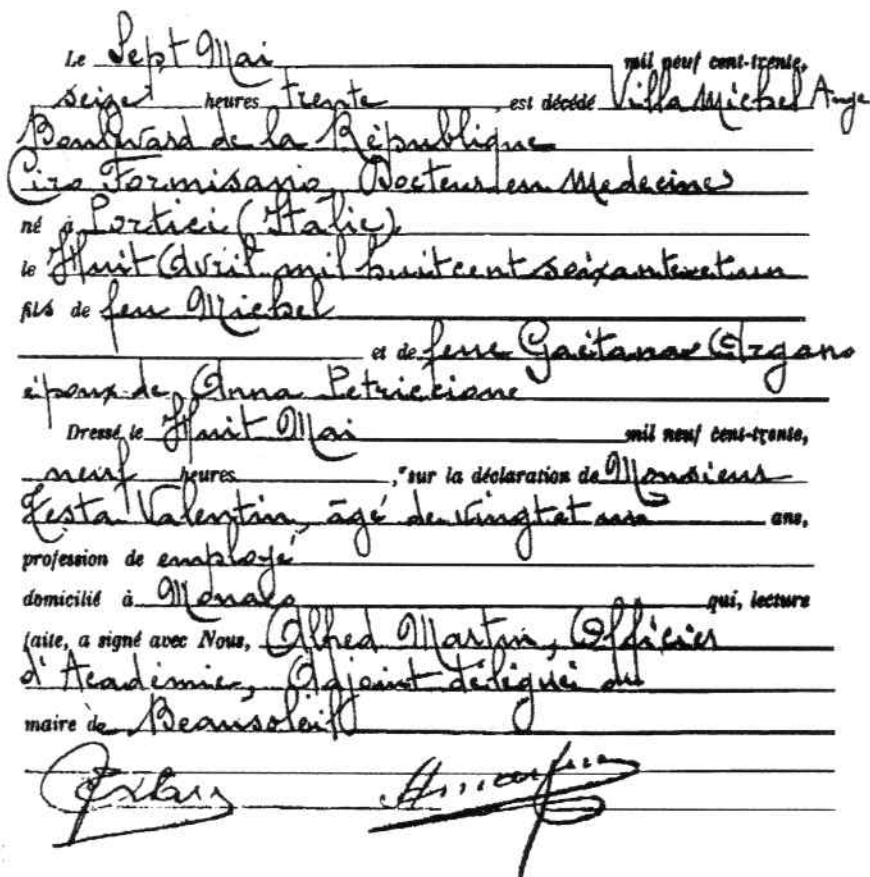 Le Sept Mai mil neuf cent-trente,
seize heures trente est décédé Villa Michel Ange
Boulevard de la République
Ciro Formisano, Docteur en Medecine
né à Portici (Italie)
le Huit Avril mil huit cent soixante et un
fils de feu Michel
et de feue Gaëtana Argano
époux de Anna Petriccione
Dressé le Huit Mai mil neuf cent-trente,
neuf heures , sur la déclaration de Monsieur
Testa Valentin, âgé de vingt et un ans,
profession de employé
domicilié à Monaco qui, lecture
faite, a signé avec Nous, Alfred Martin, Officier
d'Académie, Adjoint délégué du
maire de Beausoleil